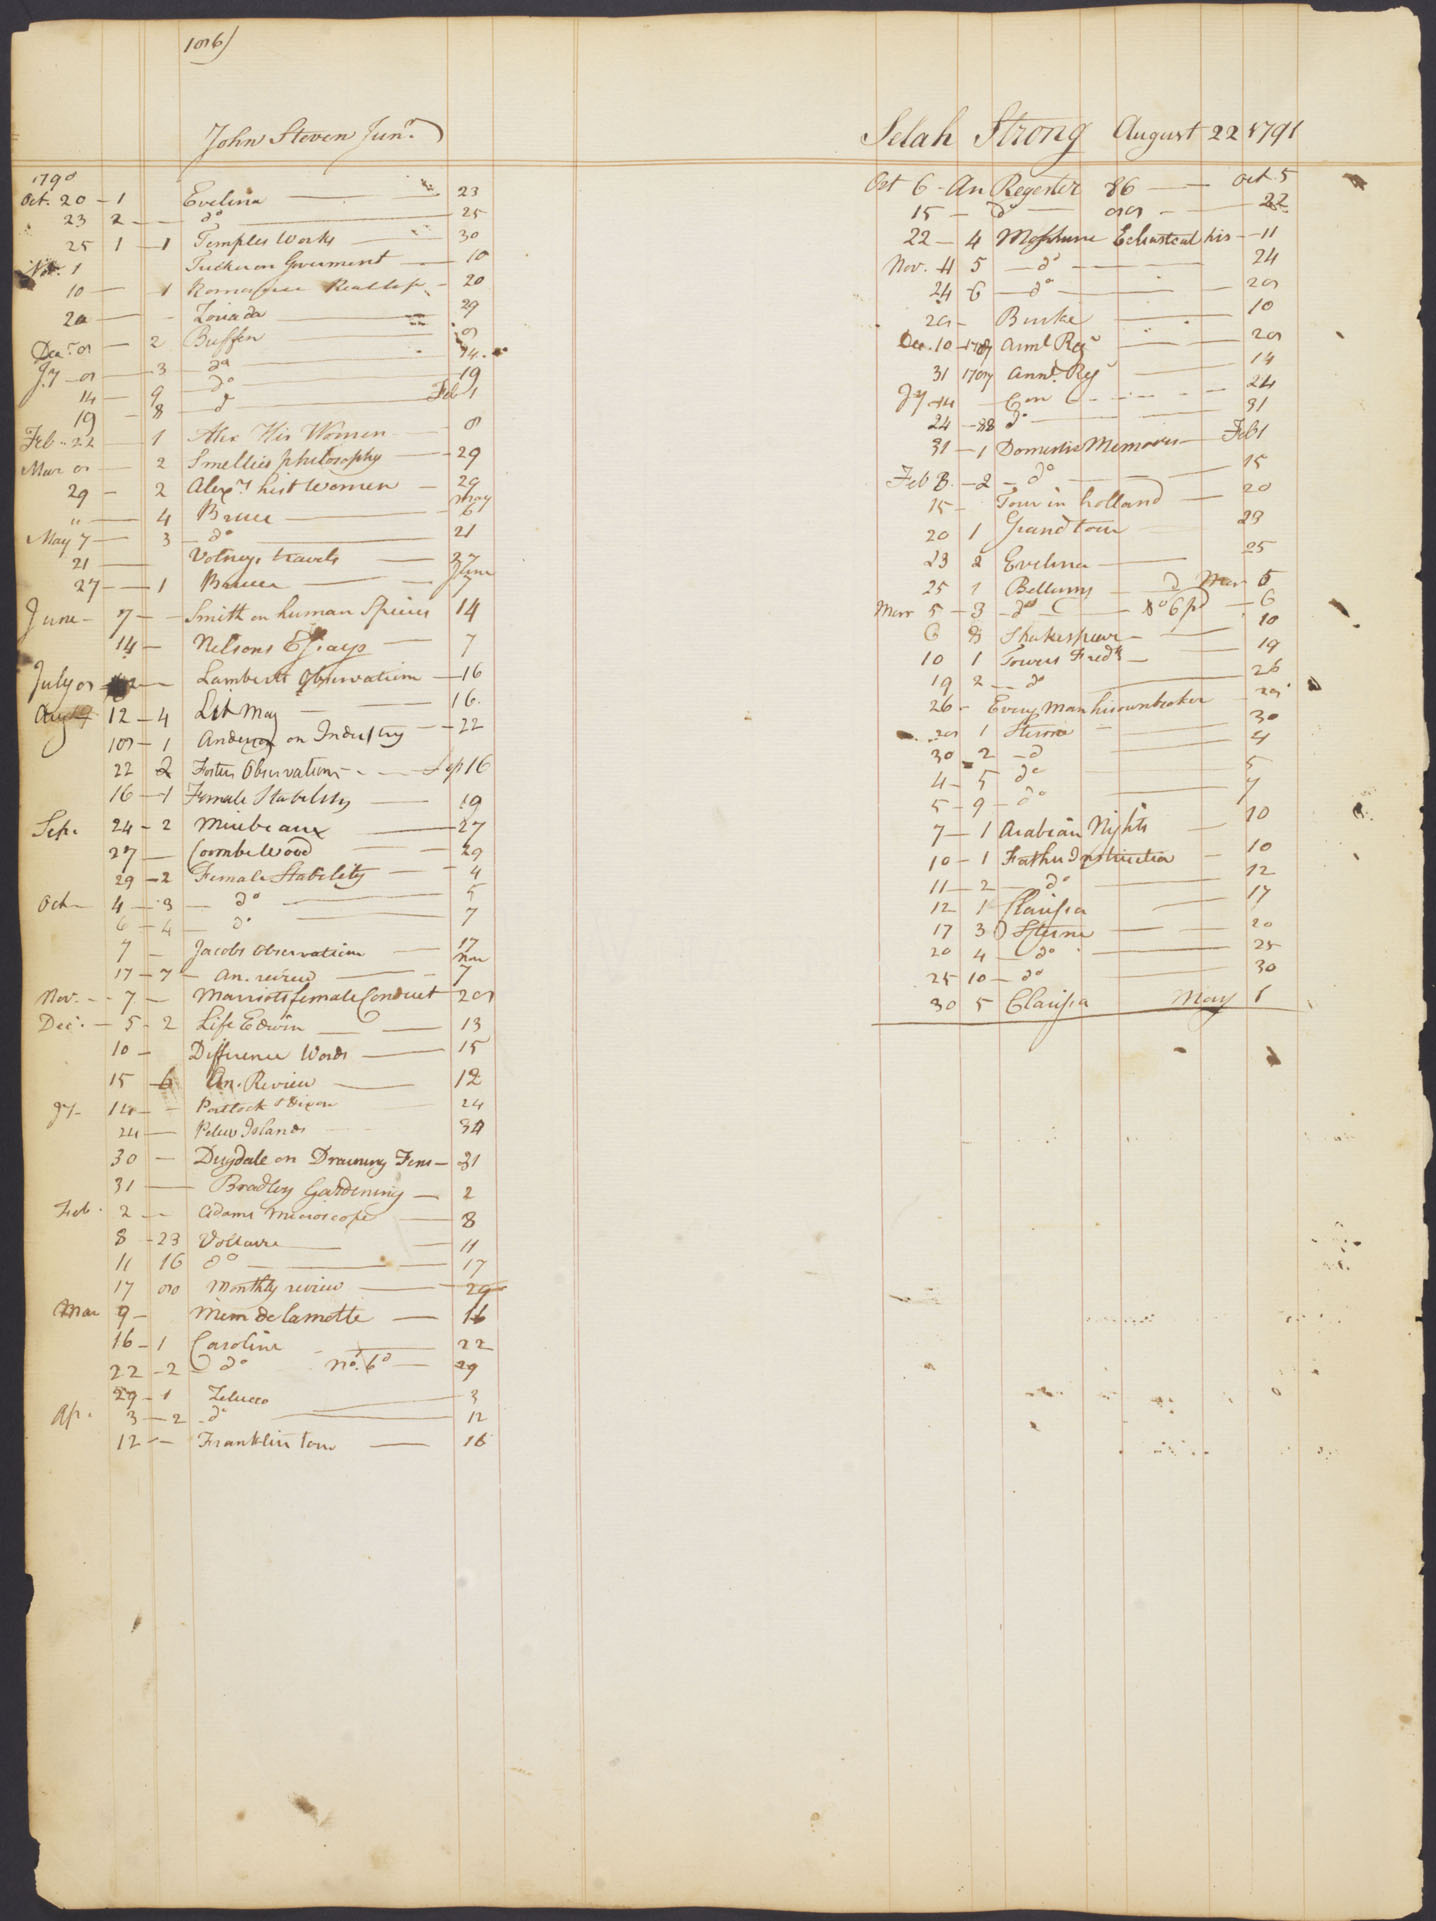 John Steven Junr.
1790
Oct. 20 - 1 Evelina 23
23 2 - do 25
25 1 - 1 Temples Works 30
Nov. 1 Tucker on Goverment 10
10 1 Romance 20
20 - Louisa da 29
Decr. 8 - 2 Buffon 8
Jy - 8 - 3 - do 14
14 - 9 do 19
19 - 8 - do Feb 1
Feb. 22 - 1 Alex His Women 8
Mar 8 - 2 Smellies philosophy 29
29 - 2 Alexrs hist Women - 29
" - 4 Bruce - May 6
May 7 - 3 - do 21
21 - Volneys travels - 27
27 - 1 Bruce - June 7
June - 7 - Smith on human Species 14
14 - Nelsons Essays - 7
July 8 - Lamberts Observation - 16
12 - 4 Lit Mag - 16.
18 - 1 Anderson on Industry - 22
22 2 Fosters Observations - Sep 16
16 - 1 Female Stability - 19
Sep. 24 - 2 Mirebeaux - 27
27 - Coombe Wood - 29
29 - 2 Female Stability - 4
Oct - 4 - 3 - do 5
6 - 4 - do 7
7 - Jacobs Observation - 17
17 - 7 - An. review - Nov 7
Nov. - 7 - Marriots female Conduct 28
Decr. - 5 - 2 Life Edwin - 13
10 - Difference Words - 15
15 - 6 An. Review - 12
Jy - 14 - Portlock & Dixon 24
24 - Pelew Islands 30
30 - Dugdale on Draining Fens - 31
31 - Bradley Gardening - 2
Feb. 2 - Adams Microscope - 8
8 - 23 Voltaire - 11
11 16 do - 17
17 80 Monthly review - 29
Mar 9 - Mem de lamotte - 16
16 - 1 Caroline 22
22 - 2 - do No. 6d - 29
29 - 1 Zeluco 3
Ap. 3 - 2 - do 12
12 - Franklin tour - 16
Selah Strong August 22 1791
Oct 6 - An Regester 86 - Oct. 5
15 - do 88 - 22
22 - 4 Moshiem Ecliasteal his - 11
Nov. 4 5 - do 24
24 6 - do 28
28 - Burke 10
Dec. 10 - 1787 Annl Regr 28
31 1787 Annl. Regr 14
Jy - 14 24
24 - 88 do 31
31 - 1 Domestic Memoires - Feb 1
Feb 8. - 2 - do 15
15 - Tour in holland - 20
20 1 Grand tour 23
23 2 Evelina 25
25 1 Bellamy Mar 5
Mar 5 - 3 - do 6
6 8 Shakespeare - 10
10 1 Towers Fredk - 19
19 2 - do 26
26 - Every Man his own broker 28
28 1 Sterne 30
30 - 2 - do 4
4 - 5 do 5
5 - 9 - do 7
7 - 1 Arabian Nights 10
10 - 1 Father Instruction - 10
11 - 2 - do 12
12 1 Clarissa 17
17 3 Sterne - 20
20 4 - do 25
25 10 - do 30
30 5 Clarissa May 1